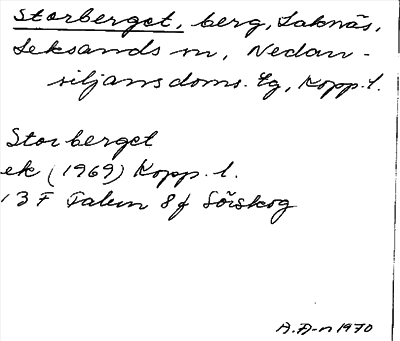 Storberget, berg, Laknäs,
Leksands sn, Nedan-
siljans doms. tg, Kopp. l.
Storberget
ek (1969) Kopp. l.
13 F Falun 8f Sörskog
A.A-n 1970